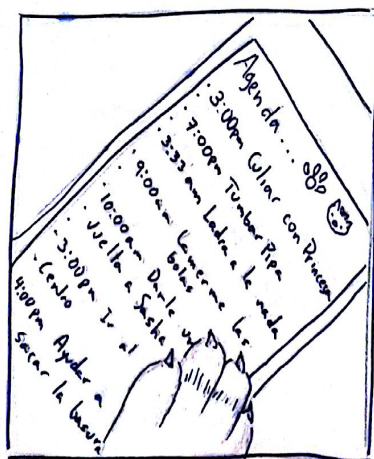 Agenda...
· 3:00pm Culiar con Princesa
· 7:00pm Tumbar Pipa
· 3:33am Ladrar a la nada
· 9:00am Lamerme las
bolas
· 10:00am Darle un
vuelta a Sasha
· 3:00pm Ir al
Centro
4:00pm Ayudar a
sacar la basura